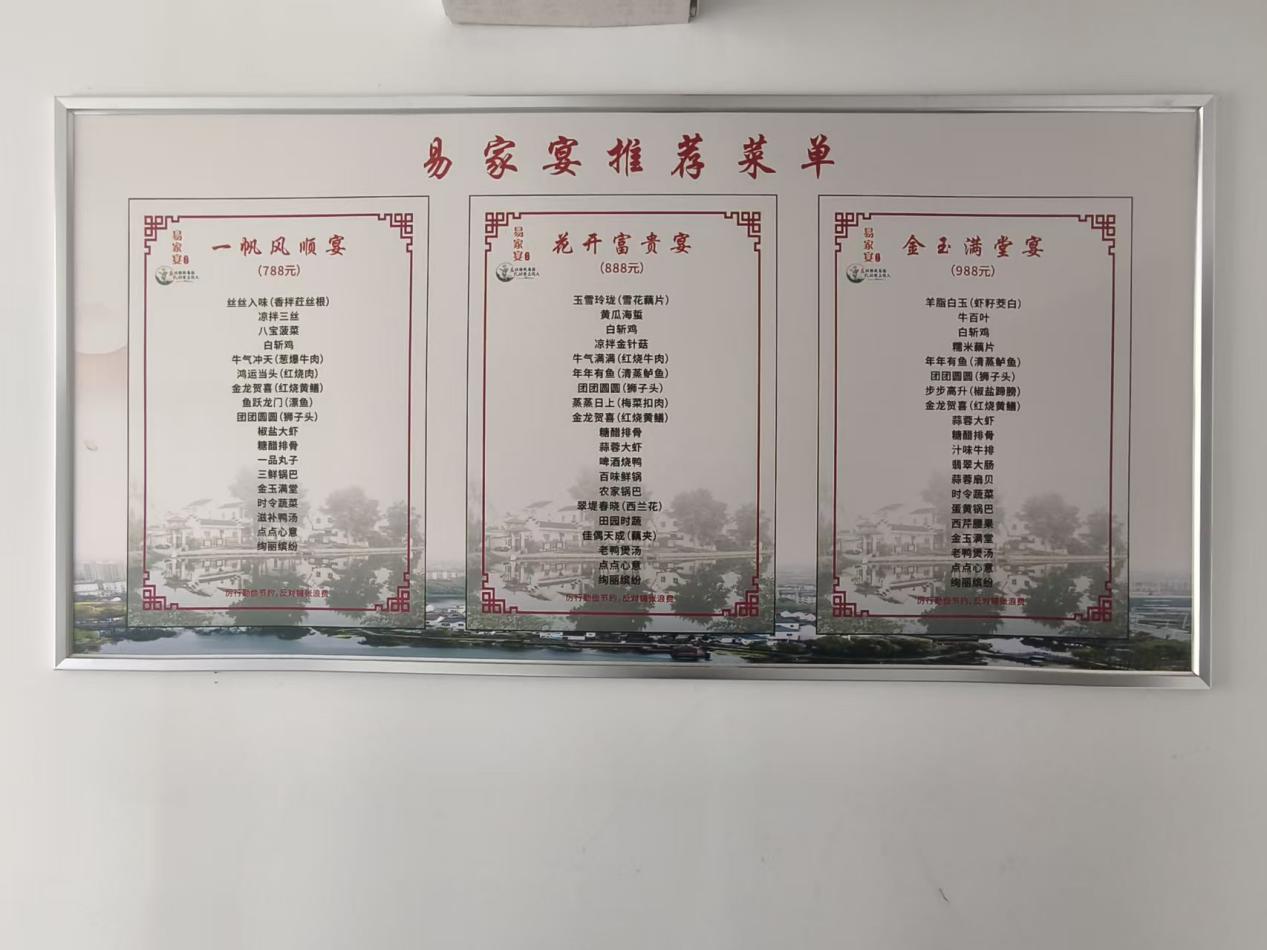 易家宴推荐菜单
易家宴
一帆风顺宴
(788元)
丝丝入味(香拌荭丝根)
凉拌三丝
八宝菠菜
白斩鸡
牛气冲天(葱爆牛肉)
鸿运当头(红烧肉)
金龙贺喜(红烧黄鳝)
鱼跃龙门(漂鱼)
团团圆圆(狮子头)
椒盐大虾
糖醋排骨
一品丸子
三鲜锅巴
金玉满堂
时令蔬菜
滋补鸭汤
点点心意
绚丽缤纷
厉行勤俭节约,反对铺张浪费
易家宴
花开富贵宴
(888元)
玉雪玲珑(雪花藕片)
黄瓜海蜇
白斩鸡
凉拌金针菇
牛气满满(红烧牛肉)
年年有鱼(清蒸鲈鱼)
团团圆圆(狮子头)
蒸蒸日上(梅菜扣肉)
金龙贺喜(红烧黄鳝)
糖醋排骨
蒜蓉大虾
啤酒烧鸭
百味鲜锅
农家锅巴
翠堤春晓(西兰花)
田园时蔬
佳偶天成(藕夹)
老鸭煲汤
点点心意
绚丽缤纷
厉行勤俭节约,反对铺张浪费
易家宴
金玉满堂宴
(988元)
羊脂白玉(虾籽茭白)
牛百叶
白斩鸡
糯米藕片
年年有鱼(清蒸鲈鱼)
团团圆圆(狮子头)
步步高升(椒盐蹄膀)
金龙贺喜(红烧黄鳝)
蒜蓉大虾
糖醋排骨
汁味牛排
翡翠大肠
蒜蓉扇贝
时令蔬菜
蛋黄锅巴
西芹腰果
金玉满堂
老鸭煲汤
点点心意
绚丽缤纷
厉行勤俭节约,反对铺张浪费